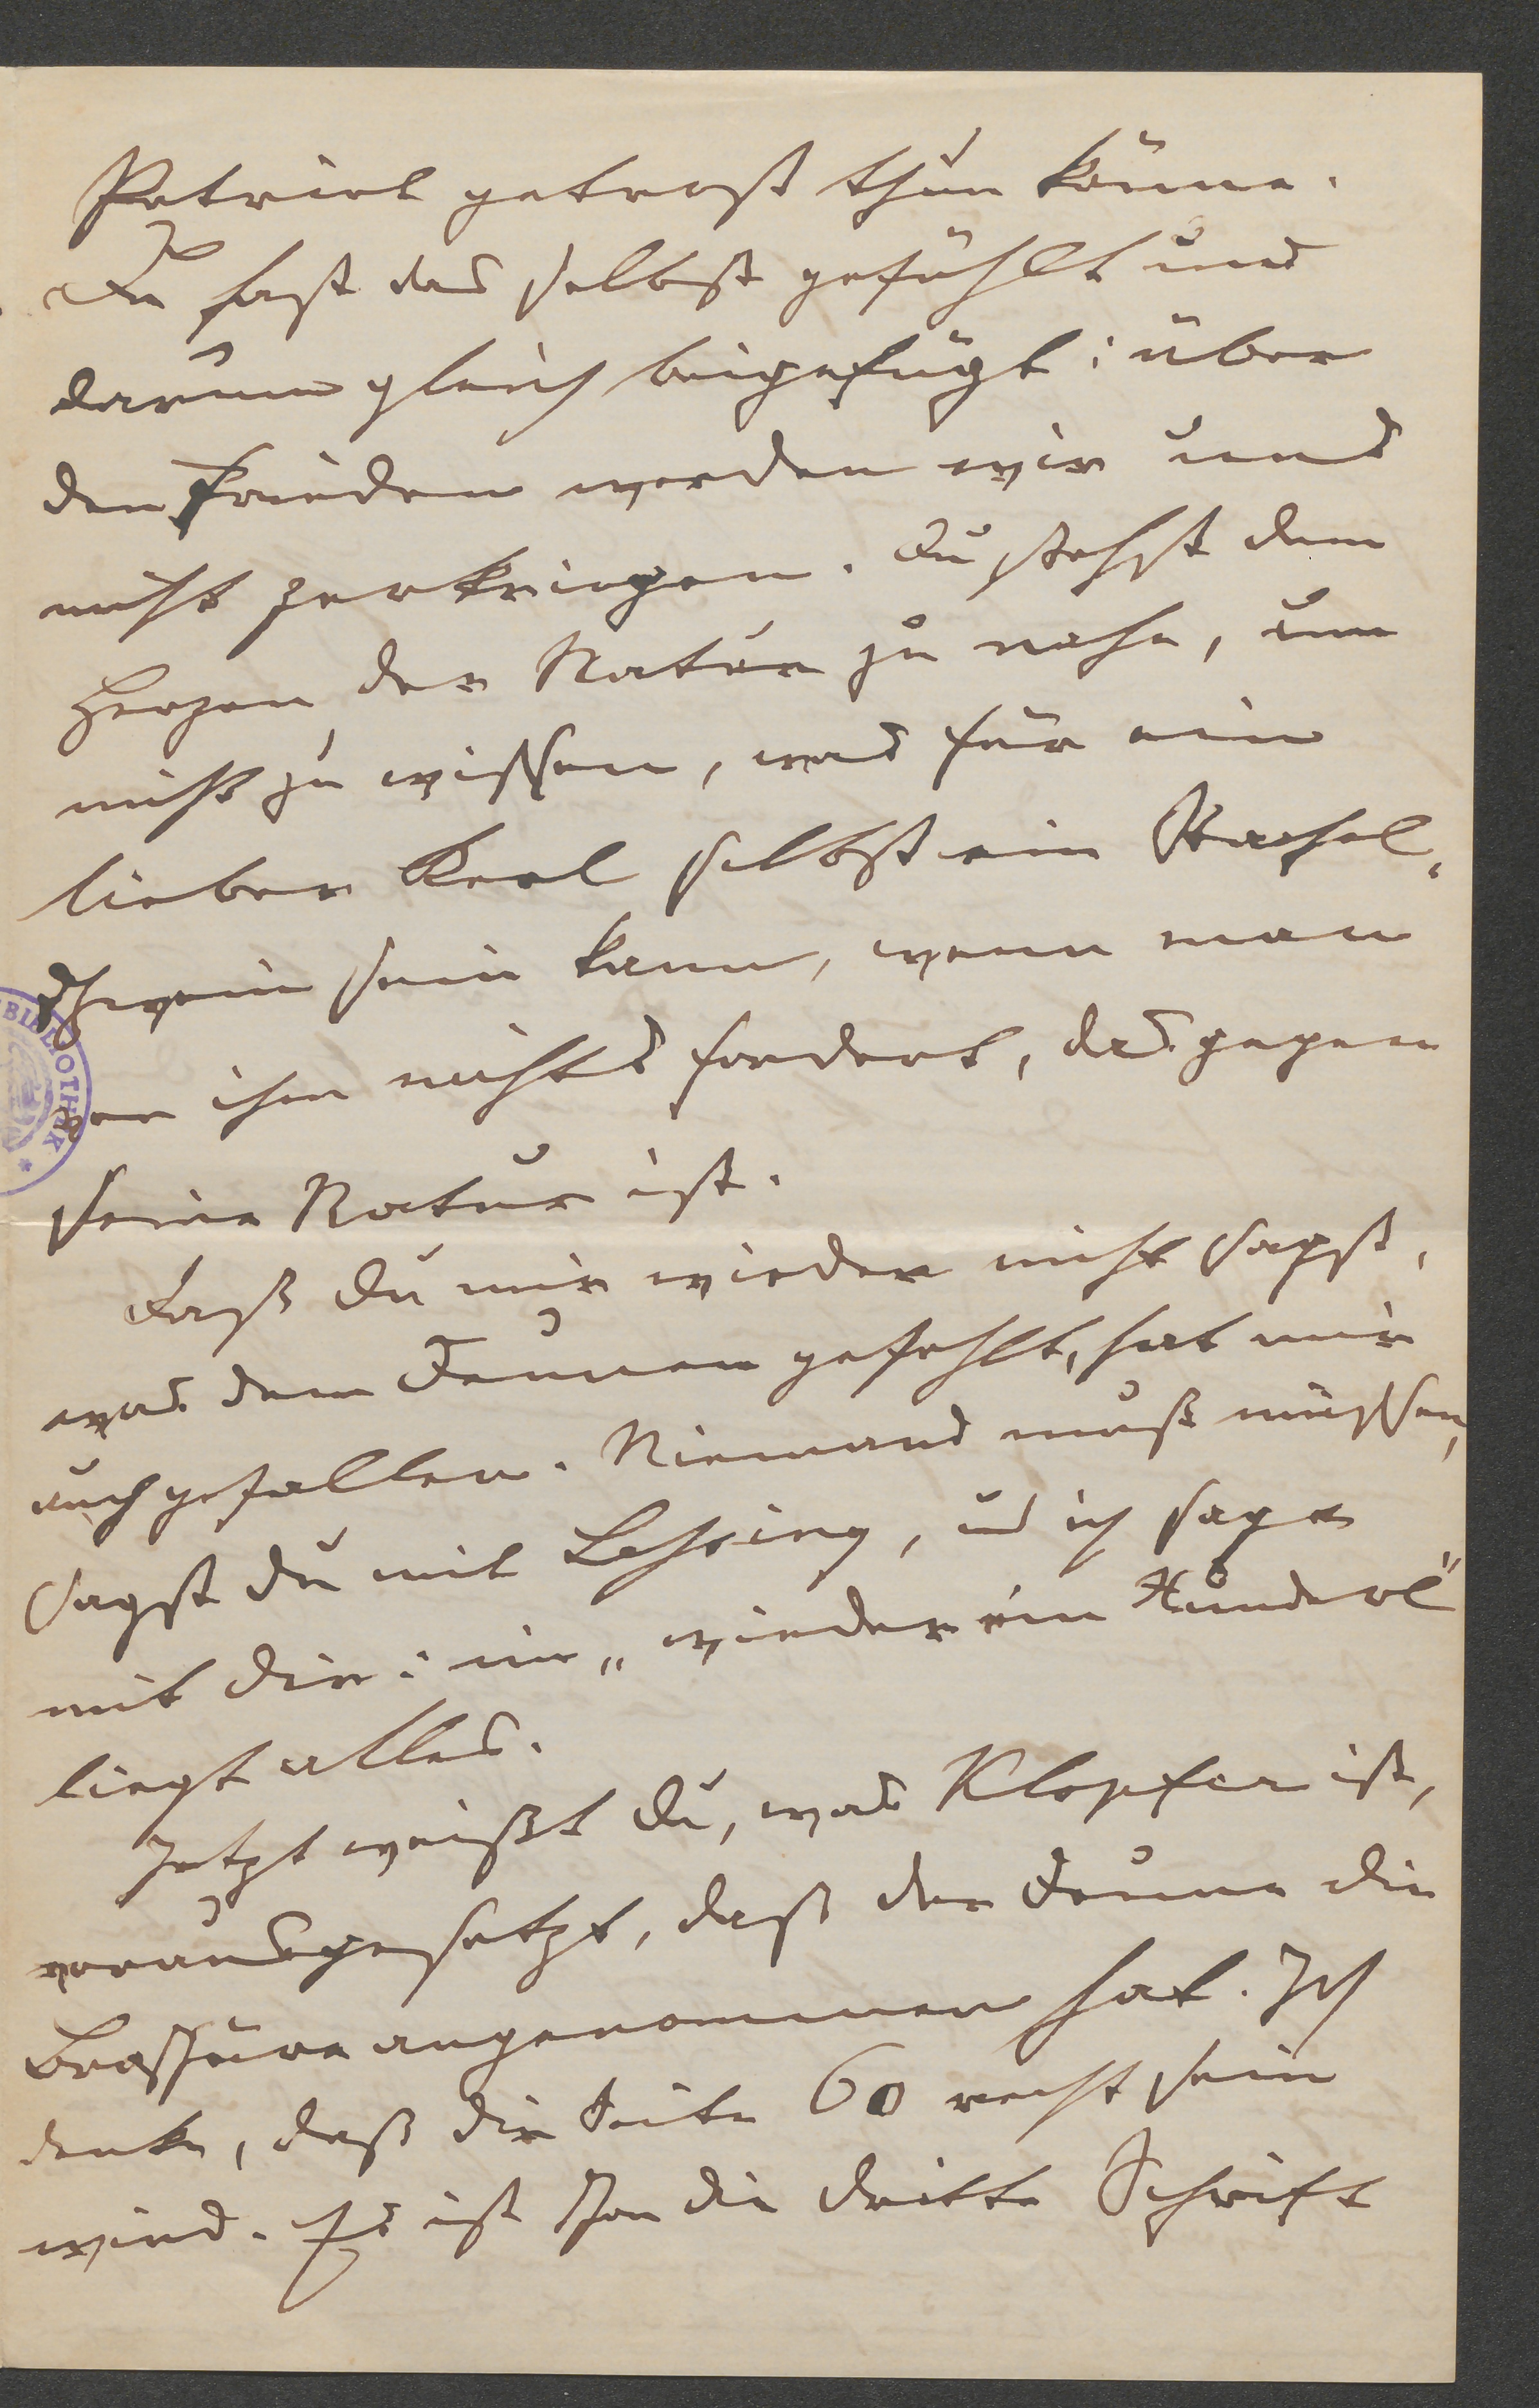 Patriot getrost thun könne.
Du hast das selbst gefühlt und
darum gleich beigefügt: über
den Frieden werden wir uns
nicht zerkriegen. Du stehst dem
Herzen der Natur zu nahe, um
nicht zu wissen, was für ein
lieber Kerl selbst ein Stachel-
schwein sein kann, wenn man
von ihm nichts fordert, das gegen
seine Natur ist.
Daß du mir wieder nicht sagst,
was dem gefehlt, hat mir
auch gefallen. Niemand muß müssen,
sagst du mit Lessing, und ich sage
mit dir: im „wieder ein Hunderl"
liegt alles.
Jetzt weißt du, was Klopfer ist,
vorausgesetzt, daß der die
Broschüre angenommen hat. Ich
denke, daß dir Seite 60 recht sein
wird. Es ist schon die dritte Schrift
BIBLIOTHEK